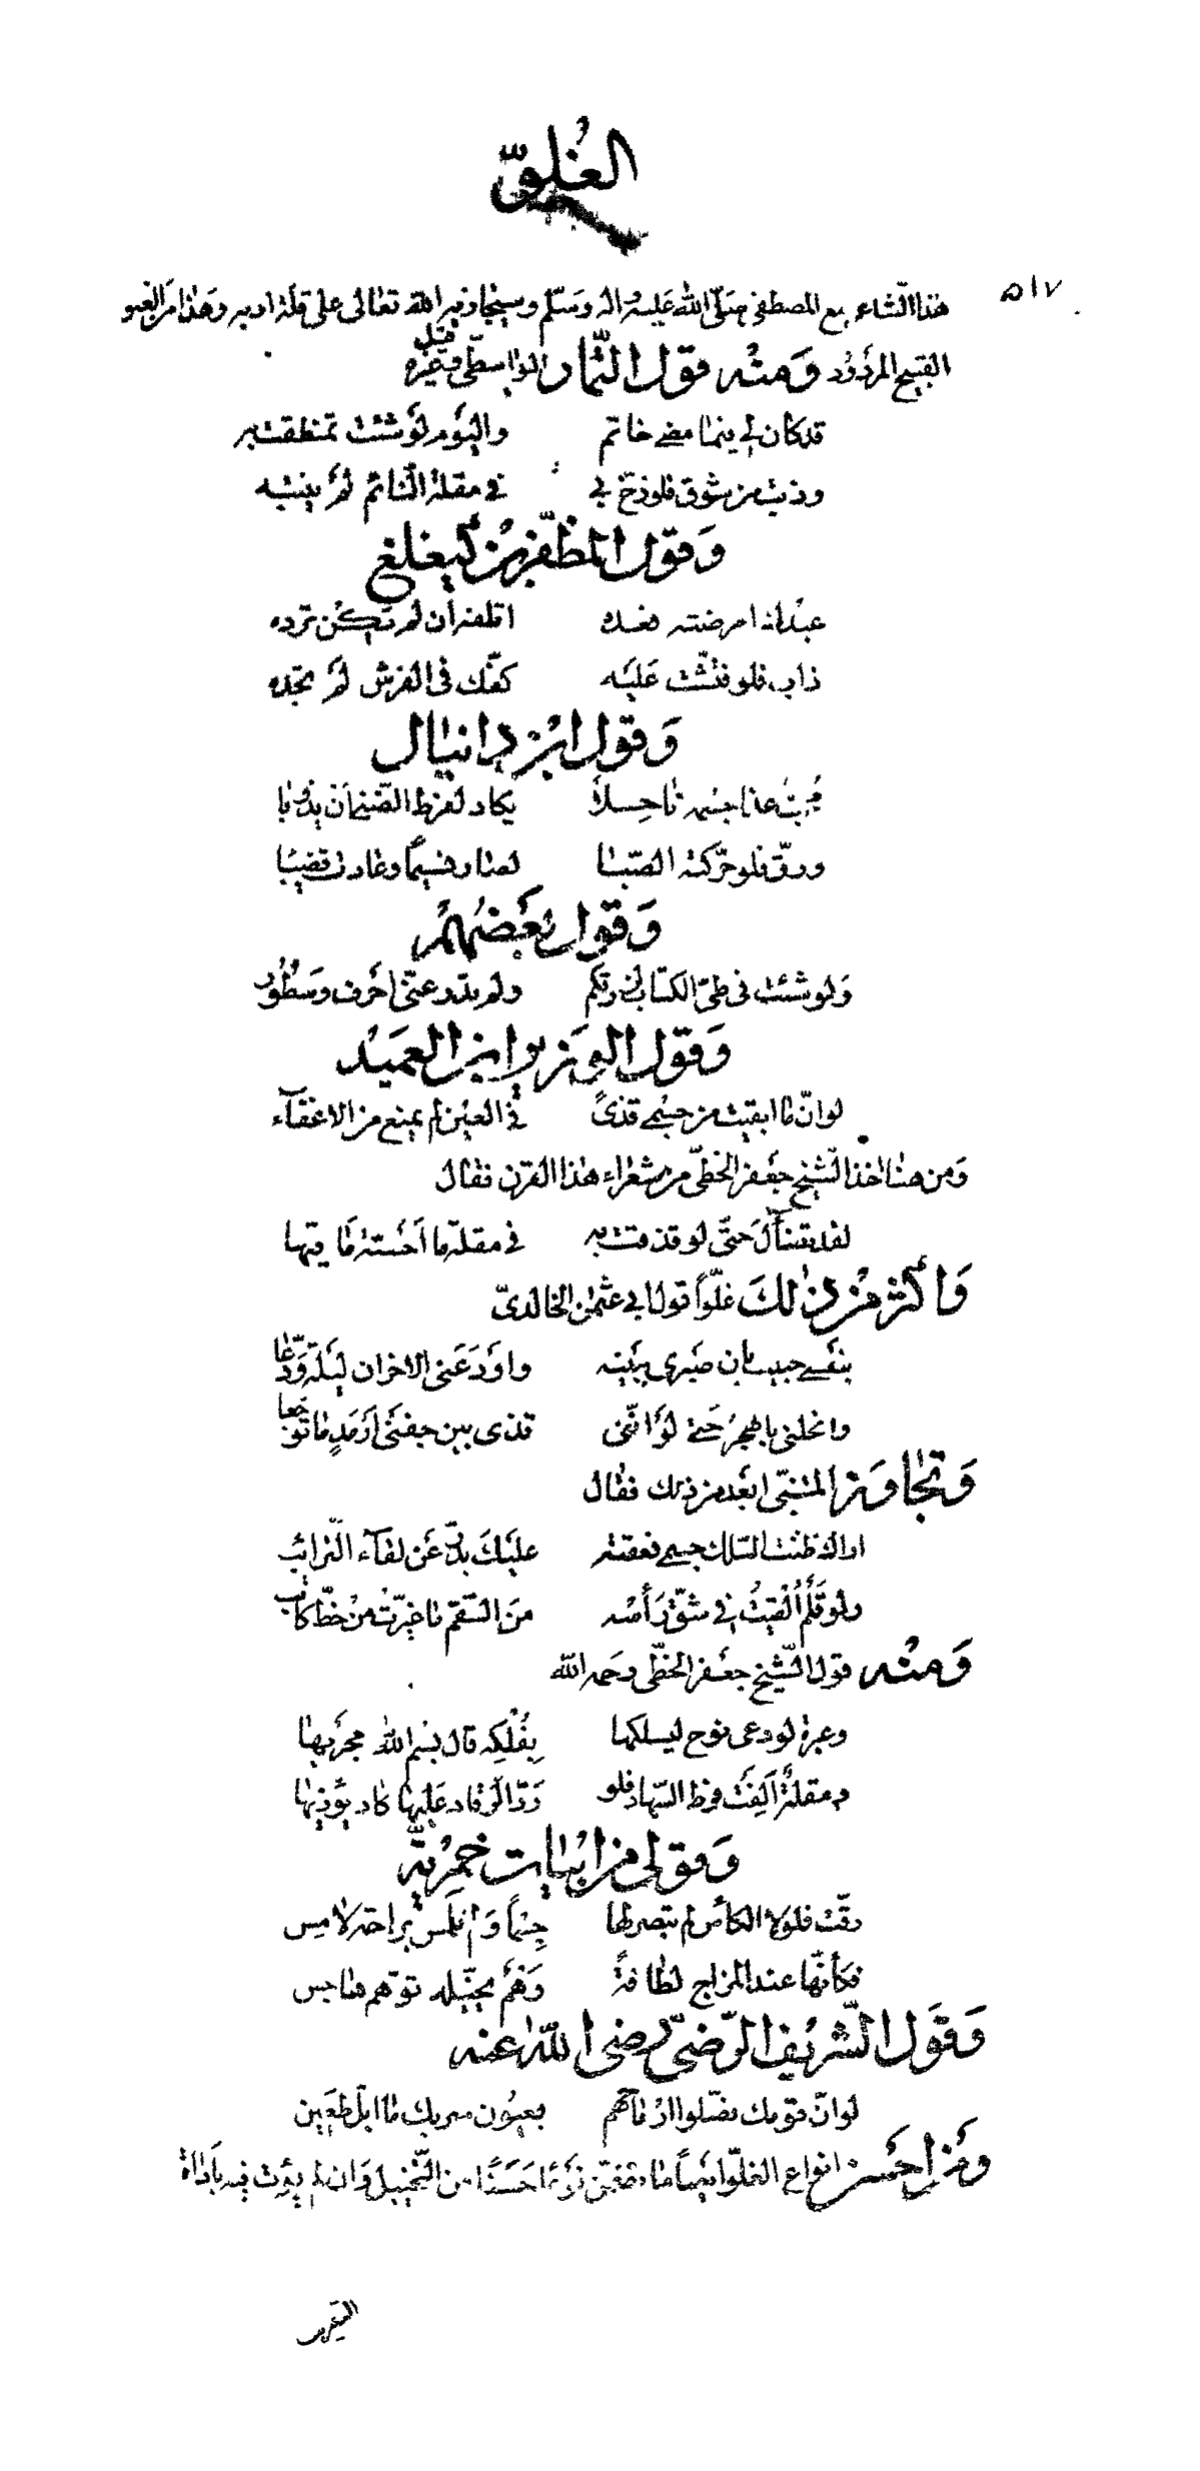 الغُلوّ
٥١٧
هذا الشاعر مع المصطفى صَلّى اللهُ عَليه واله وسَلّم وسيجازيه الله تعالى على قلة ادبه وهذا من الغلو
القبيح المردُود وَمنْه قول التمّار الواسطى وقيل غيره
قد كان لي فيما مضى خاتم واليَوم لَو شئت تمنطقت به
وذبت من شوق فلو زجّ بى في مقلة النائم لم ينتبه
وَقول المظفّر بْن كَيغلغ
عبدك امرضته فعده اتلفته ان لم تكن ترده
ذاب فلو فتّشت عَليَه كفّك فى الفرش لم تجده
وَقول ابْن دانيال
محبّ غدا جسْمه ناحِلاً يكاد لفرط الضّنى أن يذوبا
ورقّ فلو حرّكته الصّبا لصار نسيمًا وعادت قضيبا
وَقول بعَضهُمْ
وَلو شئت فى طىّ الكتاب لزرتكم ولم تدر عنّى احرف وسَطُور
وَقول الوَزير ابن العَميْد
لو انّ ما ابقيت من جسْمى قذىً في العين لم يمنع من الاغفآء
وَمن هنا اخذ الشّيخ جعَفر الخطىّ من شعراء هذا القرن فقال
لقد تضآئل حَتّى لو قذفت به في مقلة ما اَحَسّته مَا قيها
وَاكَثر مْن ذلكَ غلوّاً قول ابي عثمان الخالدىّ
بنفسى حبيب بان صَبرى ببَينه واَودَعَنى الاحزان ليَلة وَدّعا
وانحلنى بالهجرِ حَتى لوَ انّنى قذى بين جفنَى ارمَدٍ ما توَجعا
وَتجَاوَز المتنبّى ابعَد من ذلك فقال
اراك ظننت السّلك جسمى فعقته عليَكَ بدرّ عَن لقآء التّرائبِ
ولو قَلَم اُلْقِيتُ في شقّ رَأسْه منَ السّقم ما غيّرتُ مْن خطّ كاتب
وَمنْه قول الشّيخ جعَفر الخطّى رحمه الله
وعبرة لو دعى نوح ليسلكها بِفُلْكِه قال بسْم الله مجرَيها
ومقلةٌ اَلِفَت فرط السّهاد فلو رَدّ الرّقاد عَليها كاد يؤذيها
وَقولى من ابْيات خمريْةّ
رقّت فلولا الكأس لم تبصر لها جِسْماً وَلم تلمس براحة لامِس
فكأنّها عند المزاج لطافةً وَهْم يخيّله توهّم هاجس
وَقَول الشّريَف الرّضىّ رضى اللّه عنه
لو انّ قومك نصّلوا ارماحهم بعيُون سربك ما ابلّ طعَين
وَمْن احَسن انواع الغلوّ ايضاً ما تضمّن نوَعًا حَسَنًا من التّخييل وَان لم يؤت فيه بأداة